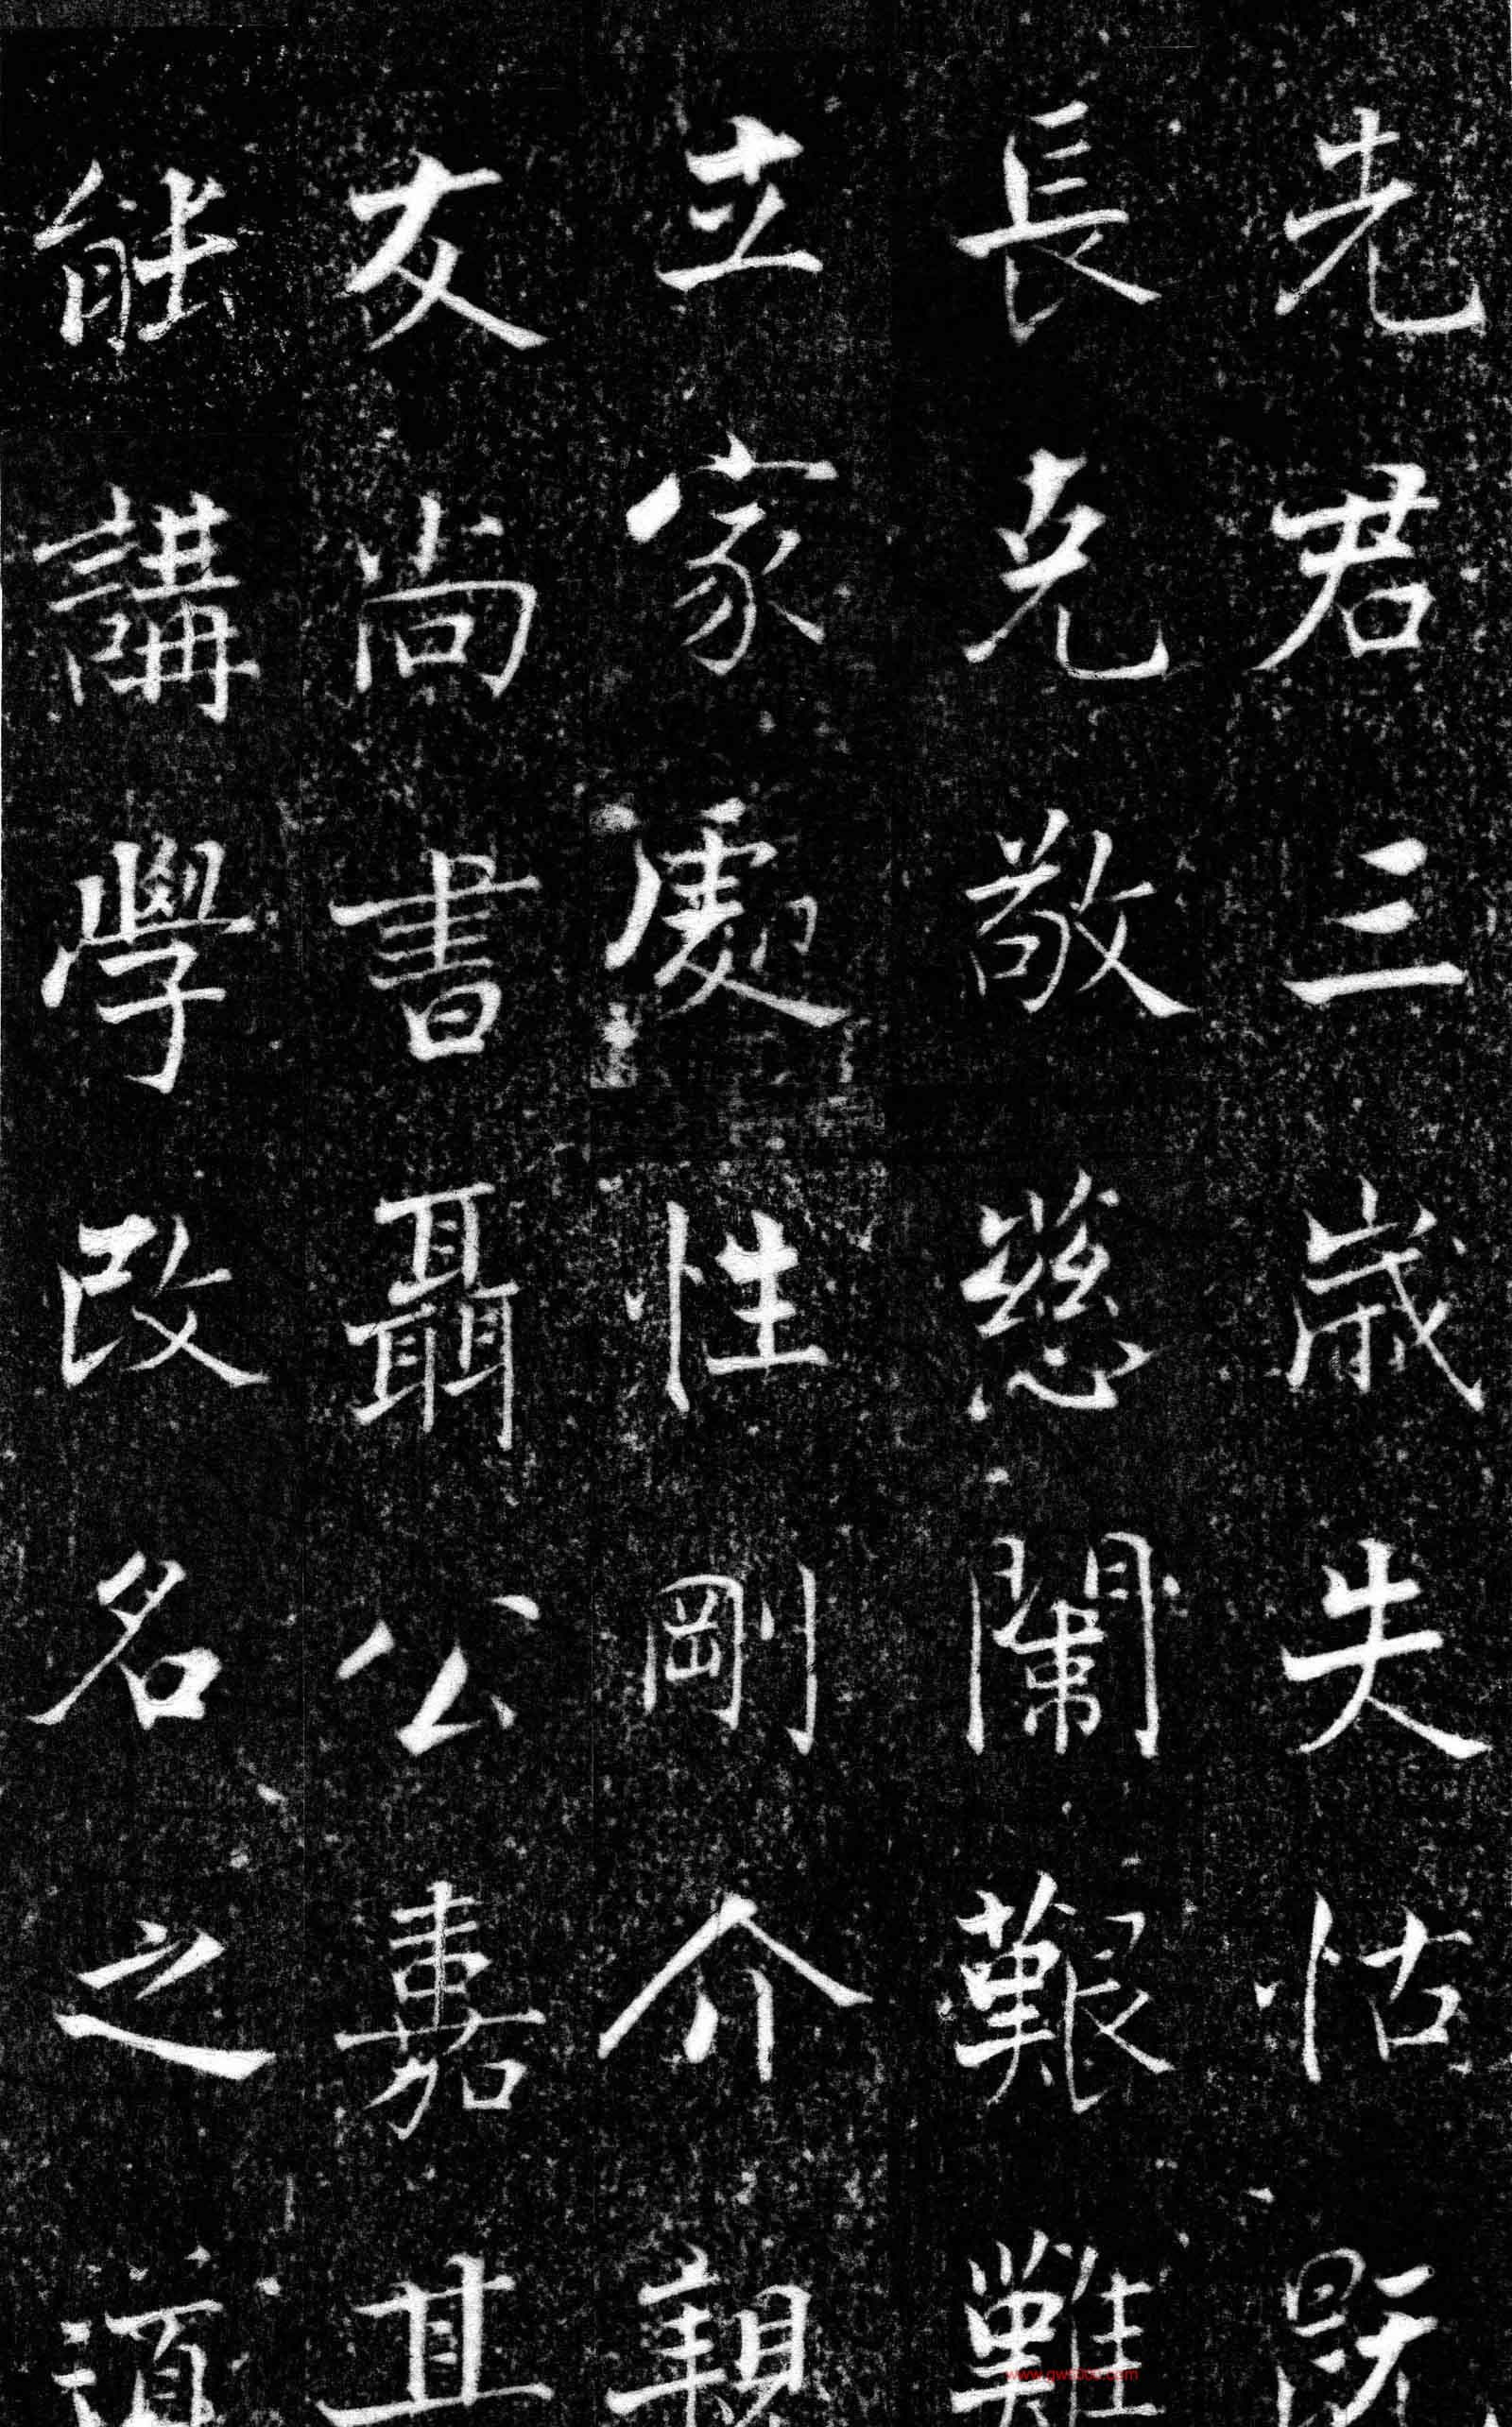 先君三歲失怙既
長克敬慈闈艱難
立家處性剛介親
友尚書聶公嘉其
能講學改名之道
www.gwshou.com